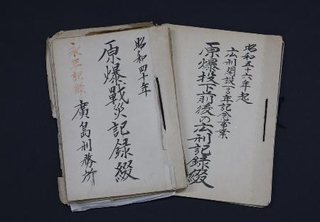 昭和五十六年起
広刑開設一〇〇年記念事業
原爆投下前後の広刑記録綴
昭和四十年
原爆戰災記録綴
廣島刑務所
永久記録